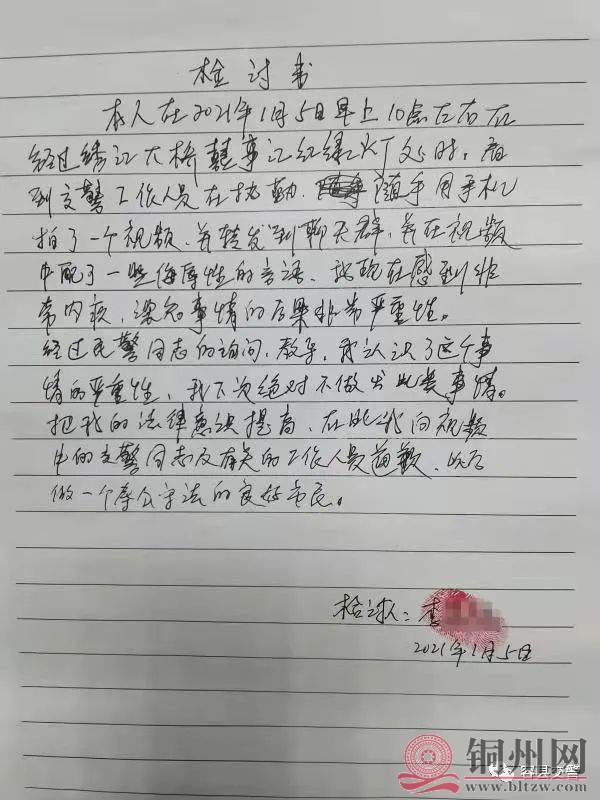 检讨书
本人在2021年1月5日早上10点左右在
经过绣江大桥 红绿灯处时,看
到交警工作人员在执勤.随手用手机
拍了一个视频,并转发到聊天群,并在视频
中配了一些侮辱性的言语、我现在感到非
常内疚,深知事情的后果非常严重性。
经过民警同志的询问,教导,我认识了这个事
情的严重性,我下次绝对不做出此类事情。
把我的法律意识提高,在此我向视频
中的交警同志及有关的工作人员道歉,以后
做一个奉公守法的良好市民。
检讨人:李
2021年1月5日
铜州网
容县交警
www.bltzw.com